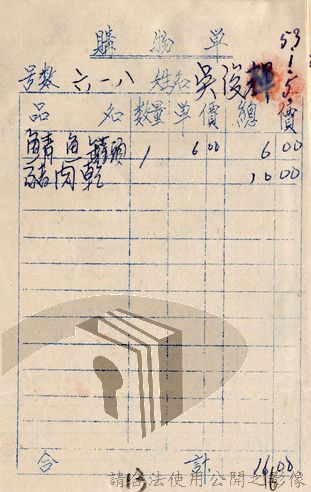 購物單
53.1.5
号数 六一八 姓名 吳俊輝
品名 数量 单價 總價
鯖魚罐頭 1 6.00 6.00
豬肉乾 10.00
合計 16.00
13 16
請合法使用公開之影像